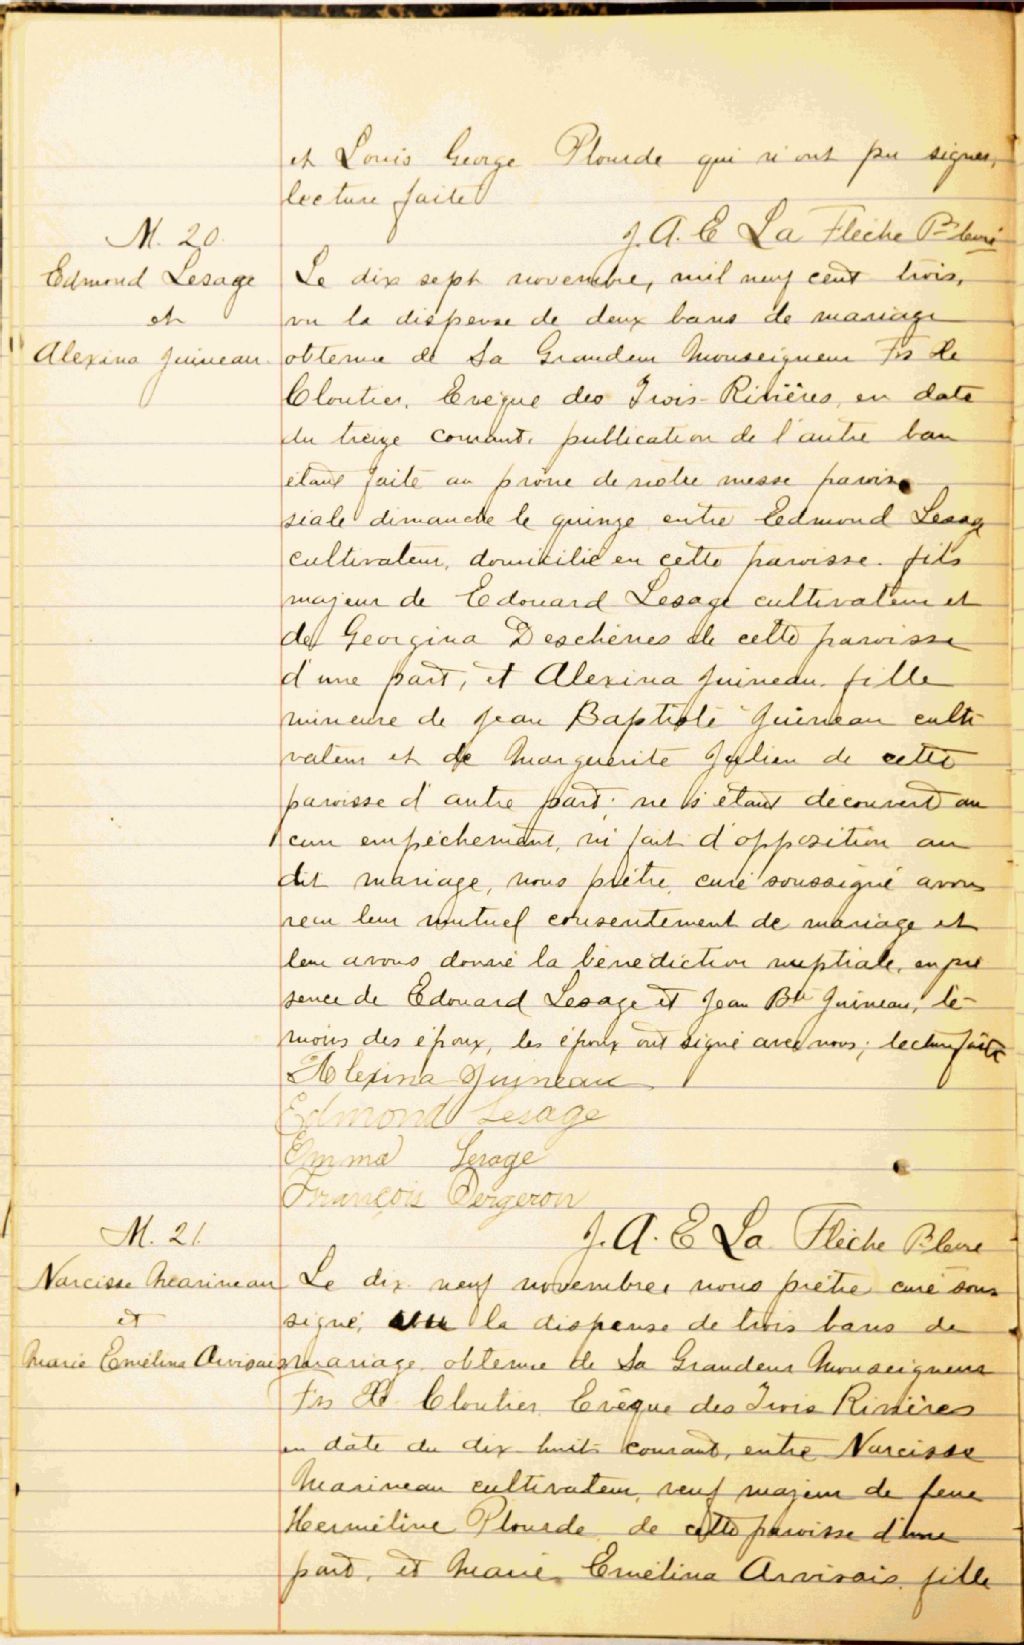 et Louis George Plourde qui n'ont pu signer,
lecture faite
J. A. E La Flèche Ptre curé
M. 20.
Edmond Lesage
et
Alexina Juineau
Le dix sept novembre, mil neuf cent trois,
vu la dispense de deux bans de mariage
obtenue de Sa Grandeur Monseigneur Frs Xe
Cloutier, Evêque des Trois-Rivières, en date
du treize courant, publication de l'autre ban
étant faite au prône de notre messe parois
siale dimanche le quinze entre Edmond Lesage
cultivateur, domicilié en cette paroisse. fils
majeur de Edouard Lesage cultivateur et
de Georgina Deschènes de cette paroisse
d'une part, et Alexina Juineau fille
mineure de Jean Baptiste Juineau culti
vateur et de Marguerite Julien de cette
paroisse d'autre part; ne s'étant découvert au
cun empêchement, ni fait d'opposition au
dit mariage, nous prêtre, curé soussigné avons
reçu leur mutuel consentement de mariage et
leur avons donné la bénédiction nuptiale, en pré
sence de Edouard Lesage et Jean Bte Juineau, té-
moins des époux, les époux ont signé avec nous; lecture faite
Alexina Juineau
Edmond Lesage
Emma Lesage
François Bergeron
J. A. E La Flèche Ptre curé
M. 21.
Narcisse Marineau
et
Marie Emélina Arvisais
Le dix neuf novembre, nous prêtre curé sous
signé, vu la dispense de trois bans de
mariage obtenue de Sa Grandeur Monseigneur
Frs X Cloutier Evêque des Trois Rivières
en date du dix-huit courant, entre Narcisse
Marineau cultivateur, veuf majeur de feue
Herméline Plourde de cette paroisse d'une
part, et Marie Emélina Arvisais fille